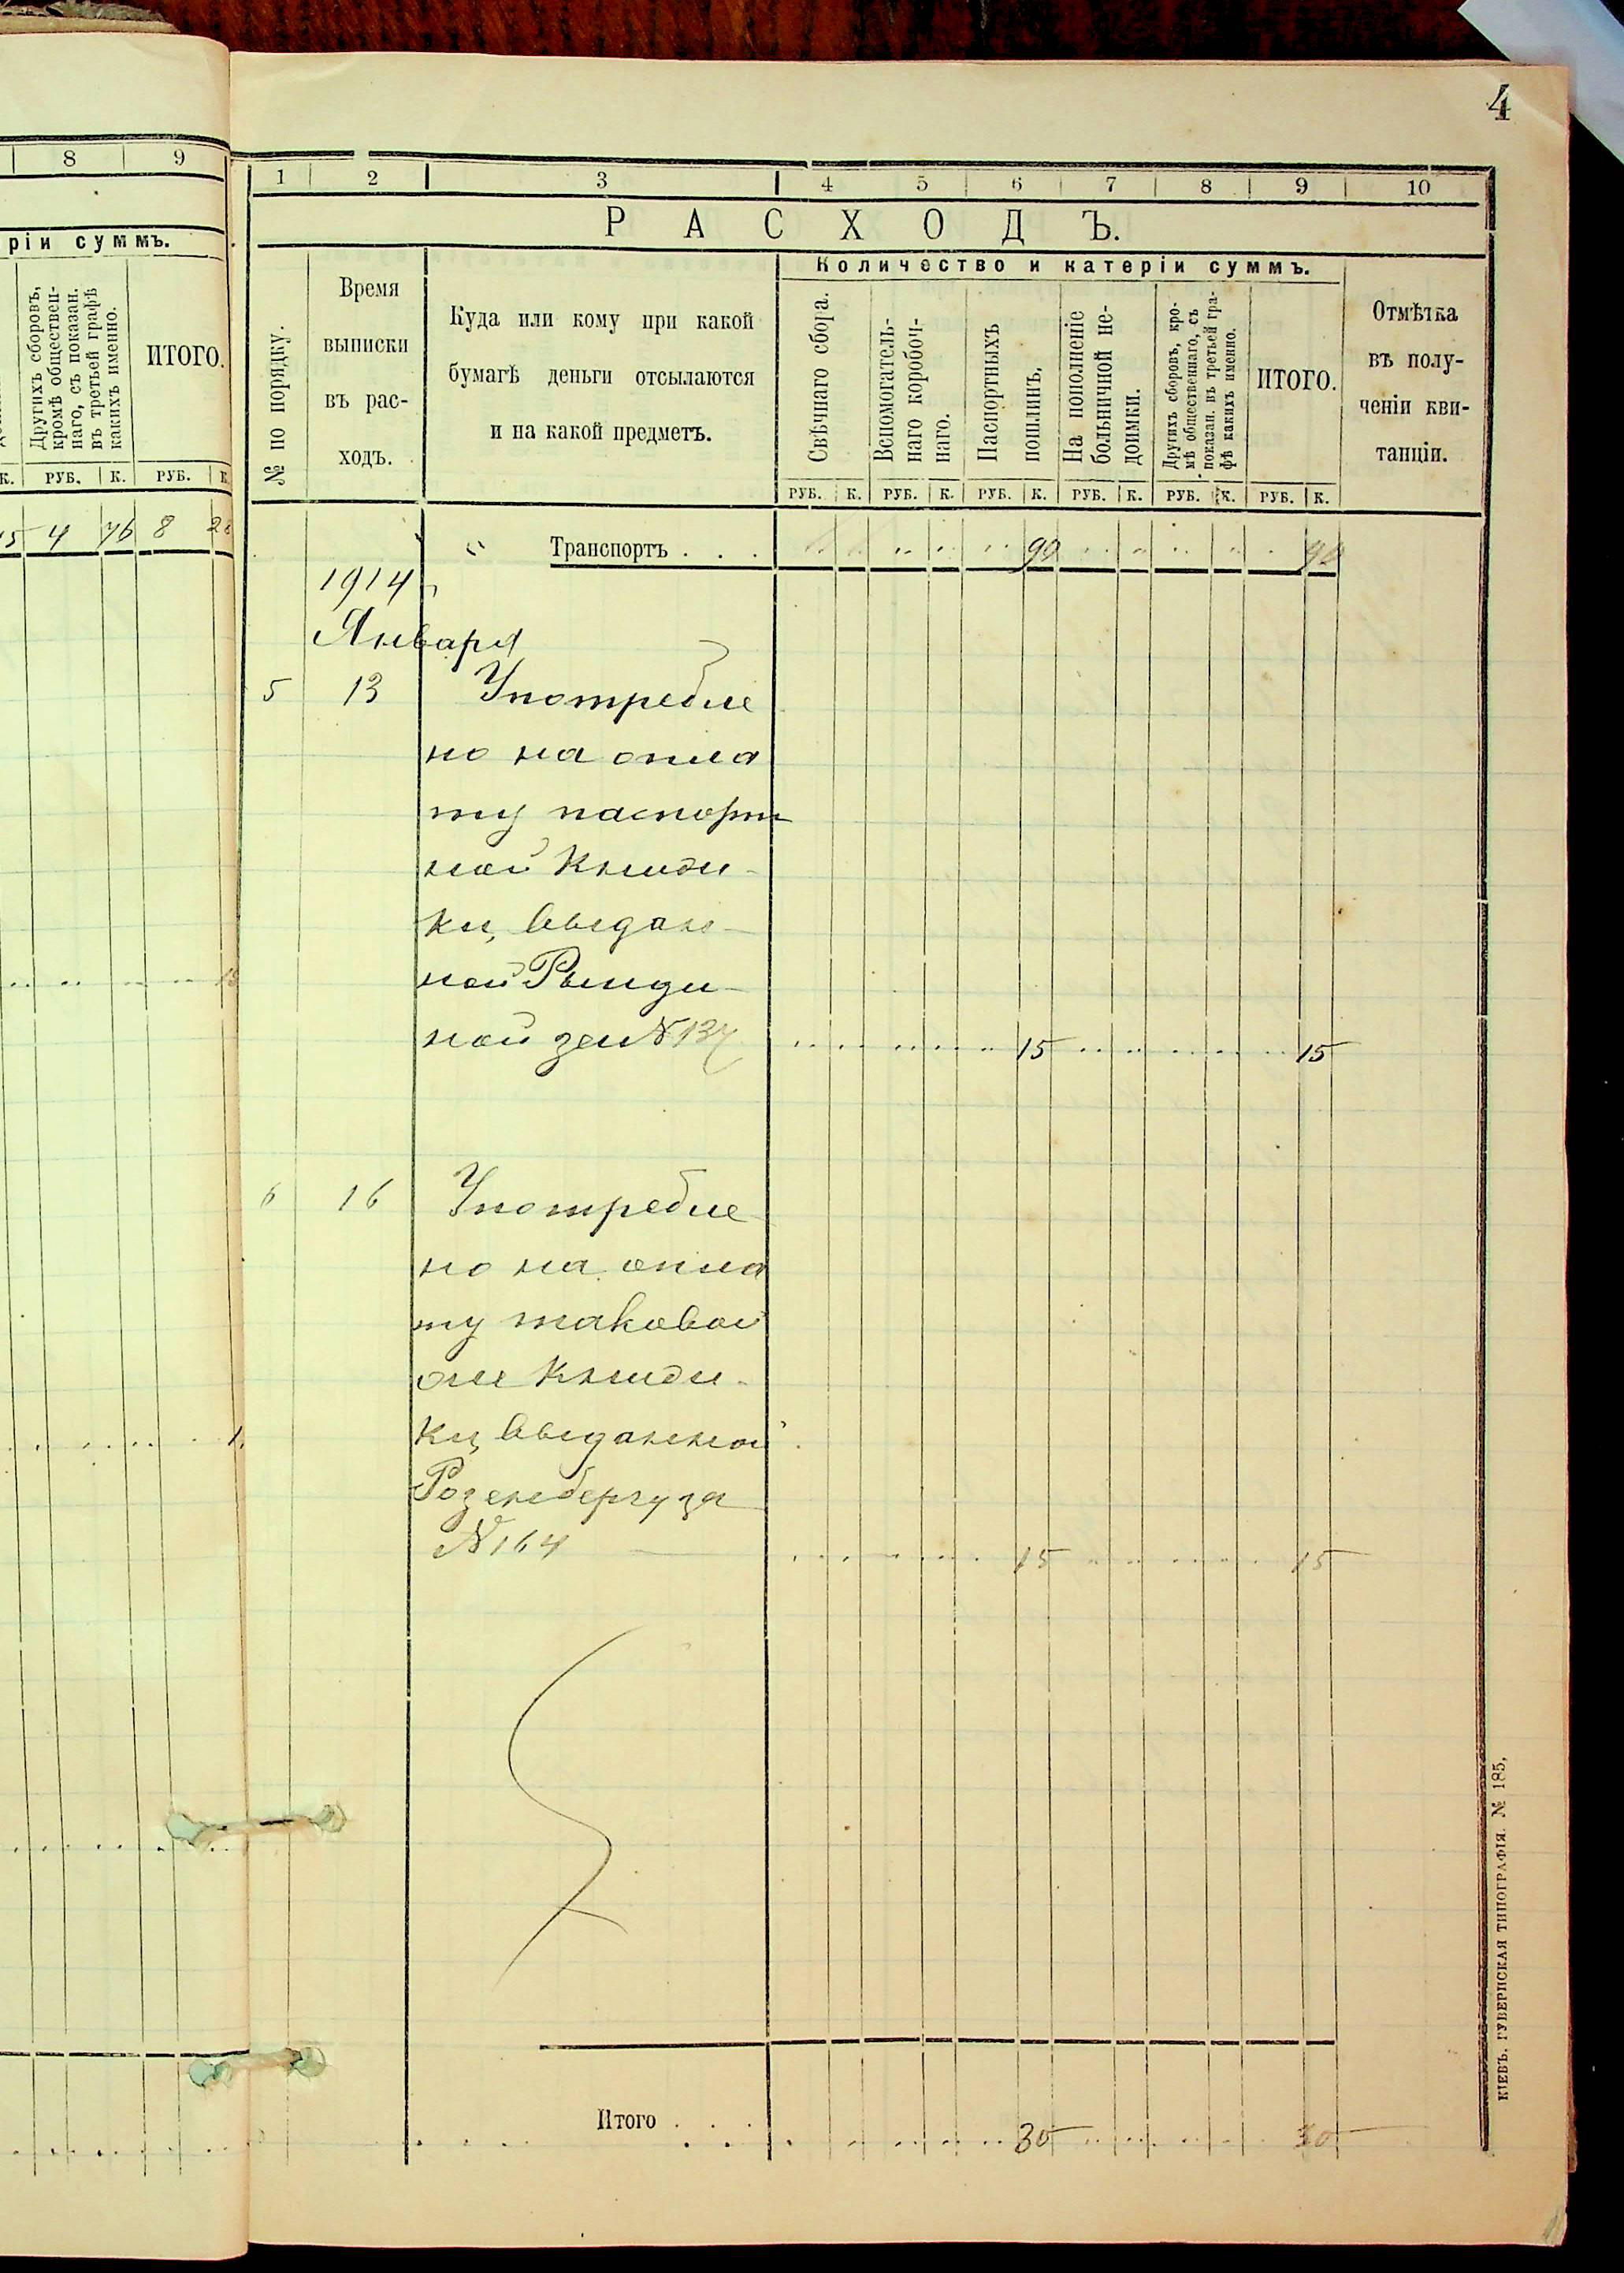 4
8 9
ріи суммъ.
Другихъ сборовъ,
кромѣ обществен-
наго, съ показан.
въ третьей графѣ
какихъ именно.
ИТОГО.
К. РУБ. К. РУБ. К
4 76 8
1 2 3 4 5 6 7 8 9 10
РАСХОДЪ.
№ по порядку.
Время
выписки
въ рас-
ходъ.
Куда или кому при какой
бумагѣ деньги отсылаются
и на какой предметъ.
Количество и катеріи суммъ.
Свѣчнаго сбора.
Вспомогатель-
наго коробоч-
наго.
Паспортныхъ
пошлинъ.
На пополненіе
больничной не-
доимки.
Другихъ сборовъ, кро-
мѣ общественнаго, съ
показан. въ третьей гра-
фѣ какихъ именно.
ИТОГО.
Отмѣтка
въ полу-
ченіи кви-
танціи.
РУБ. К. РУБ. К. РУБ. К. РУБ. К. РУБ. К. РУБ. К.
Транспортъ . . . 90 90
1914
Января
5 13 Употребле
но на опла
ту паспорт
ной Книж-
ки, выдан-
ной
ной за № 137 15 15
6 16 Употребле
но на опла
ту таковой
же Книж-
ки, выданной
Розенбергу за
№ 164 15 15
Итого . . . 30 30
КІЕВЪ. ГУБЕРНСКАЯ ТИПОГРАФІЯ. № 185.